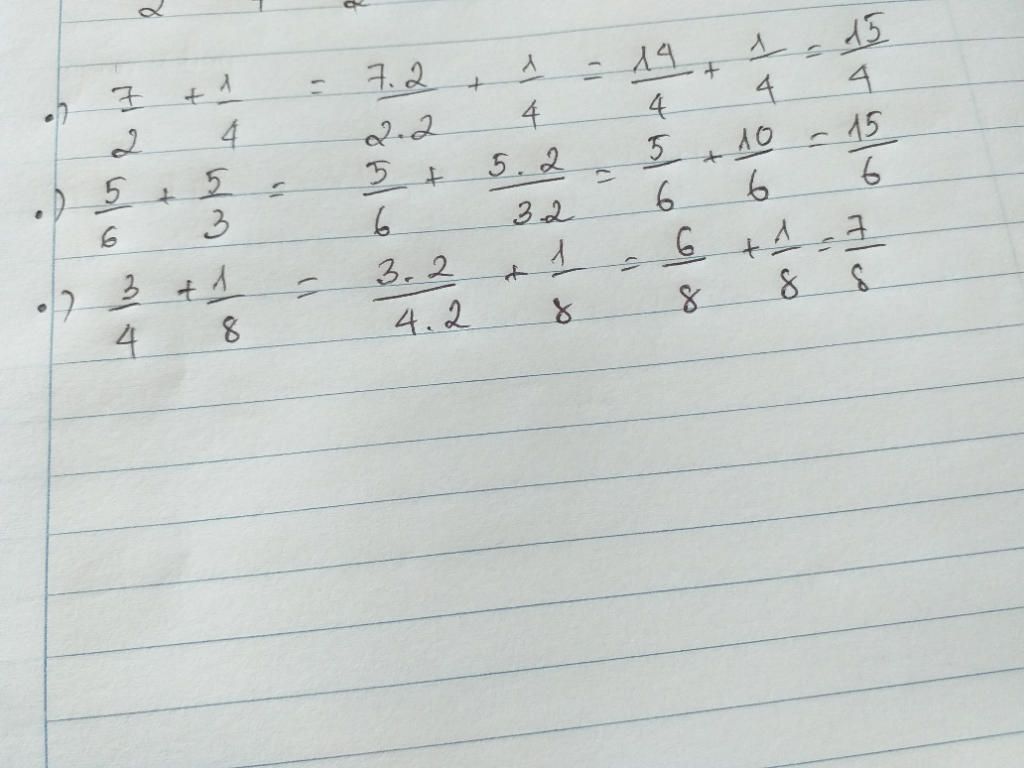 2 2
•) 7/2 + 1/4 = 7.2/2.2 + 1/4 = 14/4 + 1/4 = 15/4
•) 5/6 + 5/3 = 5/6 + 5.2/3.2 = 5/6 + 10/6 = 15/6
•) 3/4 + 1/8 = 3.2/4.2 + 1/8 = 6/8 + 1/8 = 7/8